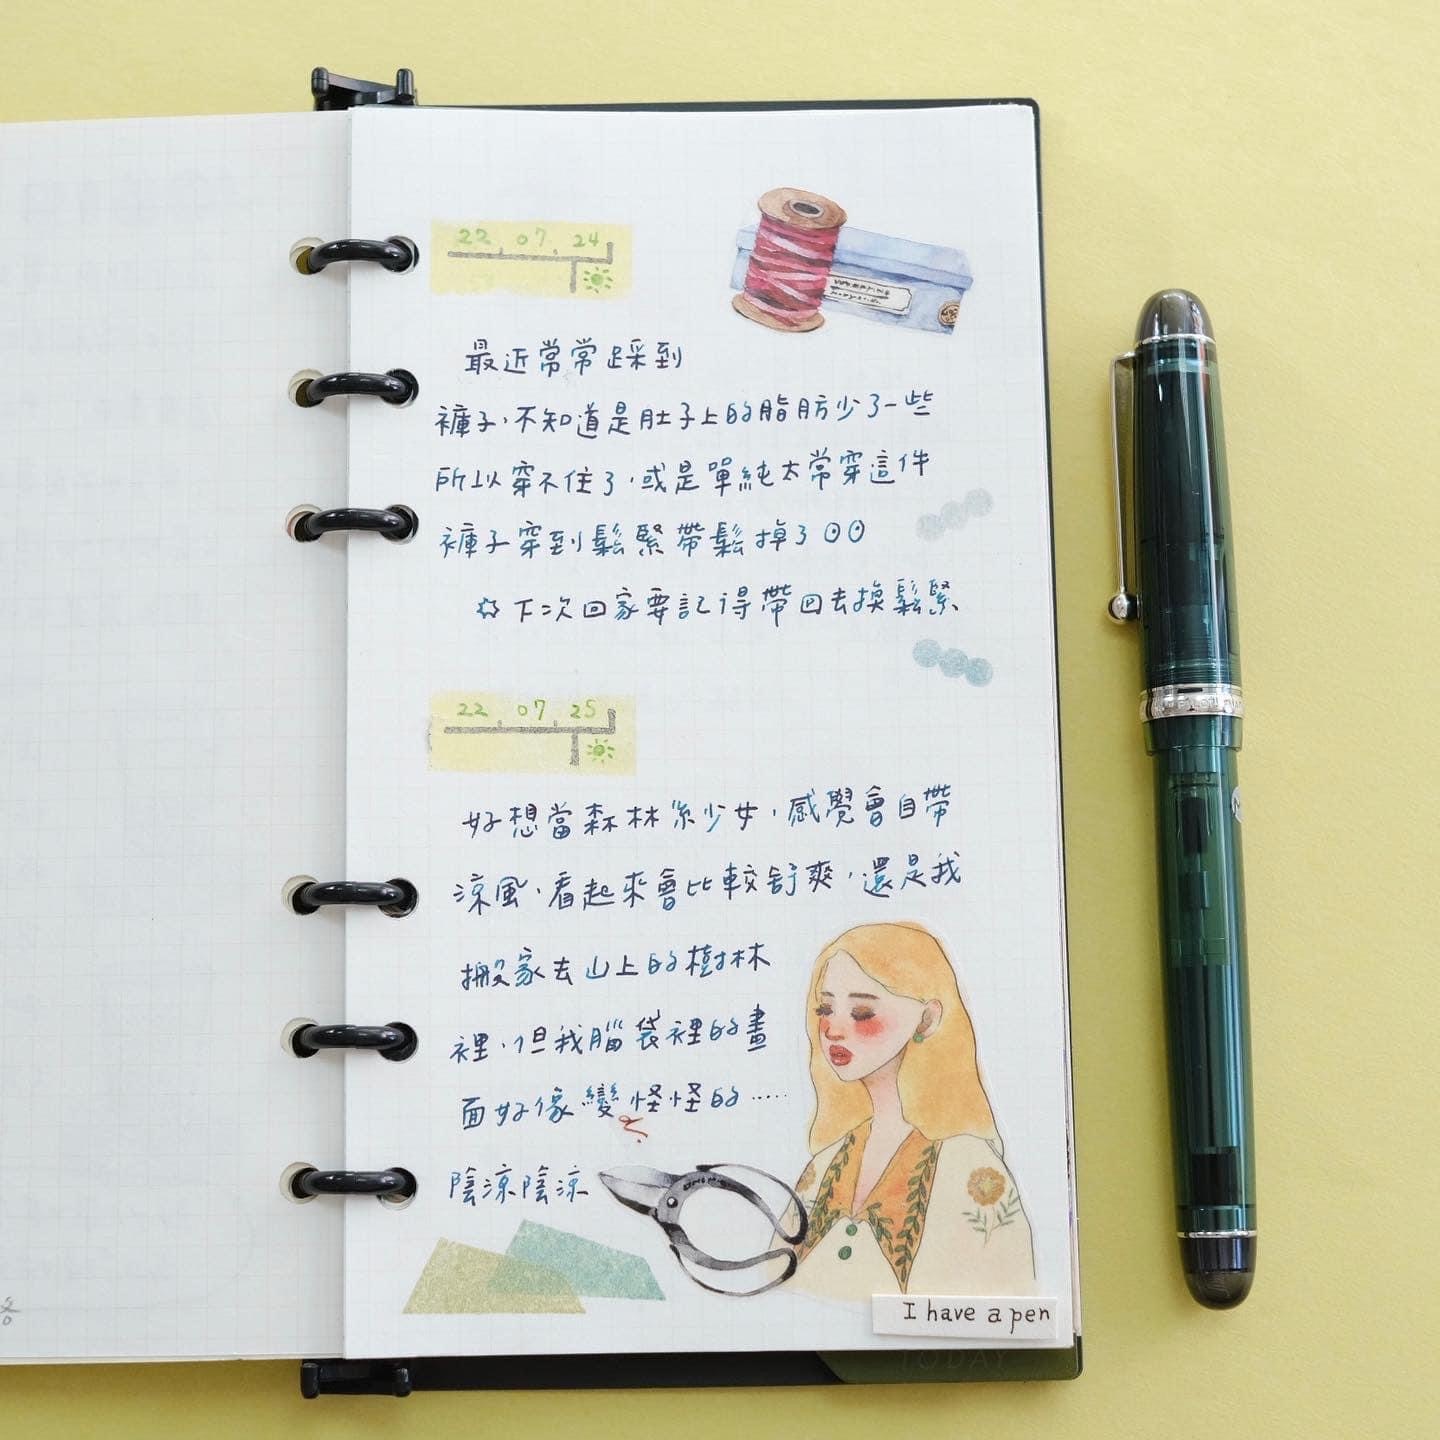 22 07 24
最近常常踩到
褲子,不知道是肚子上的脂肪少了一些
所以穿不住了,或是單純太常穿這件
褲子穿到鬆緊帶鬆掉了⊙⊙
☆下次回家要記得帶回去換鬆緊
22 07 25
好想當森林系少女,感覺會自帶
涼風,看起來會比較舒爽,還是我
搬家去山上的樹林
裡,但我腦袋裡的畫
面好像變怪怪的……
陰涼陰涼
I have a pen
TODAY